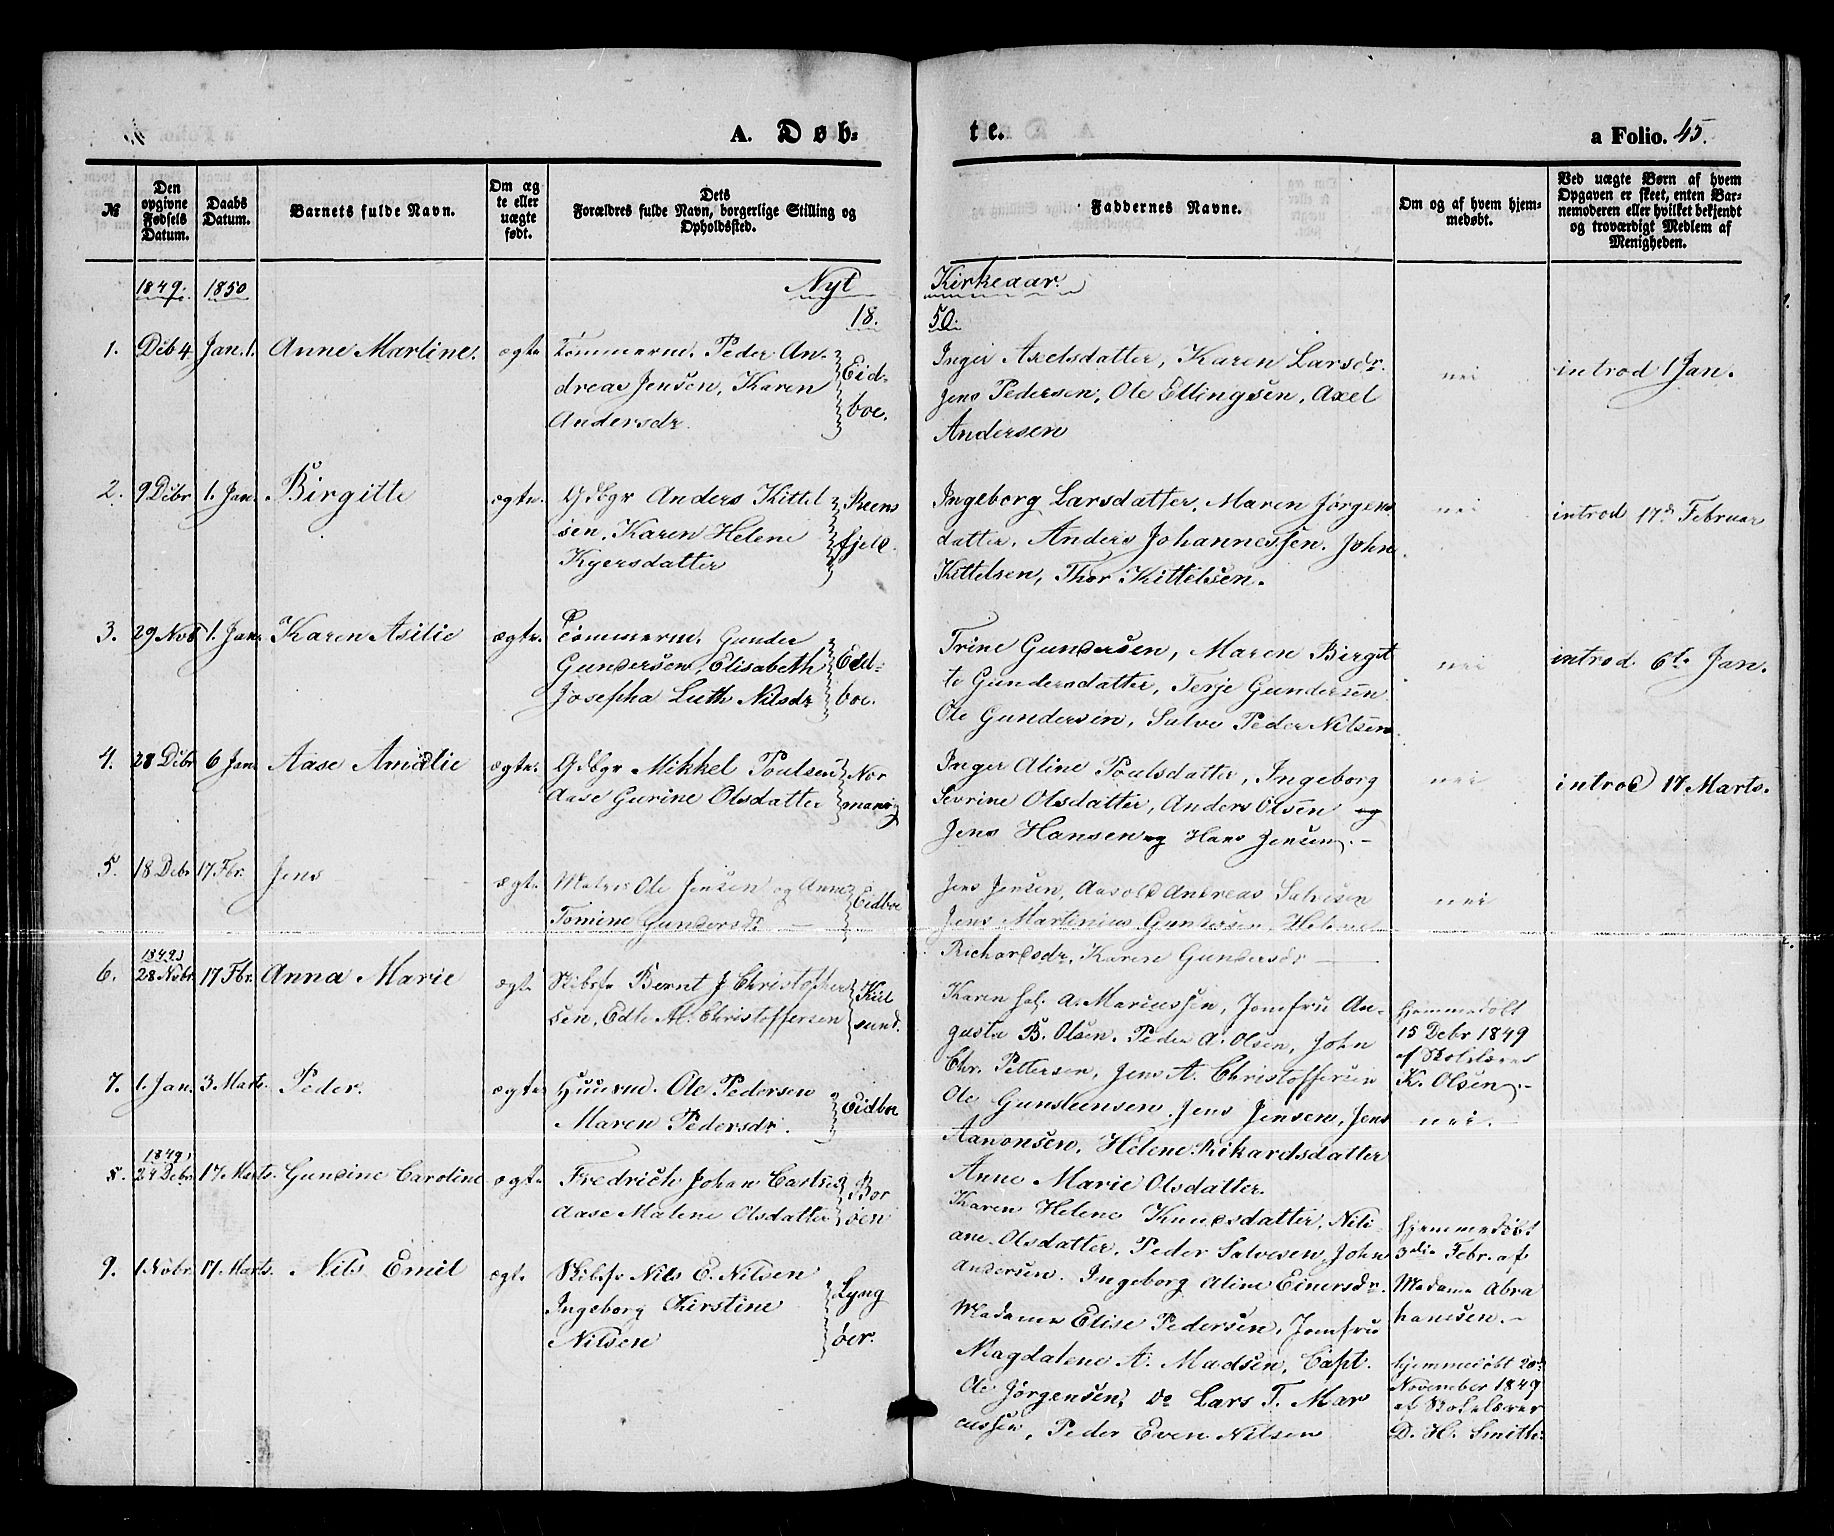 A. Døb-
te.
a Folio. 45.
№
Den opgivne Fødsels Datum.
Daabs Datum.
Barnets fulde Navn.
Om ægte eller uægte født.
Dets Forældres fulde Navn, borgerlige Stilling og Opholdssted.
Faddernes Navne.
Om og af hvem hjemmedøbt.
Ved uægte Børn af hvem Opgaven er skeet, enten Barnemoderen eller hvilket bekjendt og troværdigt Medlem af Menigheden.
1849. 1850 Nyt Kirkeaar.
18. 50.
1. Dcb 4 Jan. 1. Anne Martine. ægte
Tømmerm. Peder An-
dreas Jensen, Karen
Andersdr.
Eid-
boe.
Inger Axelsdatter, Karen Larsdr.
Jens Pedersen, Ole Ellingsen, Axel
Andersen
nei
introd 1 Jan.
2. 9 Dcbr 1. Jan. Birgitte ægte.
Gdbgr Anders Kittel
sen, Karen Helene
Kyersdatter
Steens
fjeld.
Ingeborg Larsdatter, Maren Jørgens
datter, Anders Johannessen. John
Kittelsen, Thor Kittelsen.
nei
introd 17de Februar
3. 29 Nov 1. Jan. Karen Asilie ægte.
Tømmerm. Gunder
Gundersen, Elisabeth
Josepha Luth Nilsdr
Eid-
boe.
Trine Gundersen, Maren Birgit
te Gundersdatter, Terje Gundersen
Ole Gundersen, Salve Peder Nilsen.
nei
introd. 6te Jan.
4. 28 Dcbr 6 Jan. Aase Amalie ægte.
Gdbgr Mikkel Poulsen
Aase Gurine Olsdatter
Nor
manvig
Inger Aline Poulsdatter, Ingeborg
Sevrine Olsdatter, Anders Olsen og
Jens Hansen og Hans Jensen.-
nei
introd 17 Marts.
5. 18 Debr 17 Fbr. Jens ægte
Matrs Ole Jensen og Anne
Tomine Gundersdr
Eidboe
Jens Jensen, Aasold Andreas Salvesen
Jens Martinius Gundersen, Helene
Richardsdr, Karen Gundersdr
nei
1849
6. 28 Nvbr. 17 Fbr. Anna Marie ægt.
Skibsfr Bernt J Christopher
sen, Edle M. Christoffersen
Kiil
sund.
Karen Sof. A. Mariussen, Jomfru Au-
gusta B. Olsen. Peder A. Olsen, John
Chr. Pettersen, Jens A. Christoffersen
hjemmedøbt
15 Debr 1849
af Skolelærer
K. Olsen.-
7. 1. Jan. 3. Marts. Peder. ægte
Huusm. Ole Pedersen
Maren Pedersdr.
Eidboe
Ole Gunsteensen. Jens Jensen, Jens
Aanonsen, Helene Rikardsdatter
Anne Marie Olsdatter.
nei.
1849
8. 24 Debr. 17 Marts. Gundine Caroline ægte
Fredrich Johan Carlsen
Aase Malene Olsdatter
Bor
øen
Karen Helene Knudsdatter, Nili
ane Olsdatter, Peder Salvesen, John
Andersen. Ingeborg Aline Einersdr.
hjemmedøbt
3die Febr. af
Madame Abra
hamsen.-
9. 1 Nvbr. 17 Marts. Nils Emil ægt.
Skibsfr Nils E. Nilsen
Ingeborg Kirstine
Nilsen
Lyng
øer.
Madame Elise Pedersen, Jomfru
Magdalene A. Madsen, Capt.
Ole Jørgensen, Do Lars T. Mar
cussen, Peder Even Nilsen
hjemmedøbt 20de
November 1849
af Skolelærer
D. H. Smith.